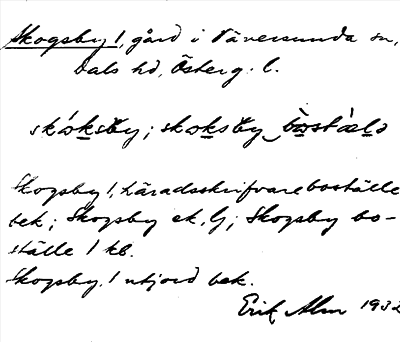 Skogsby 1, gård i Väversunda sn,
Dals hd, Österg. l.
skoksby; skoksby bostælə
Skogsby 1, häradsskrifvareboställe
bek; Skogsby ek, Gj; Skogsby bo-
ställe 1 kb.
Skogsby. 1 utjord bek.
Erik Alm 1932